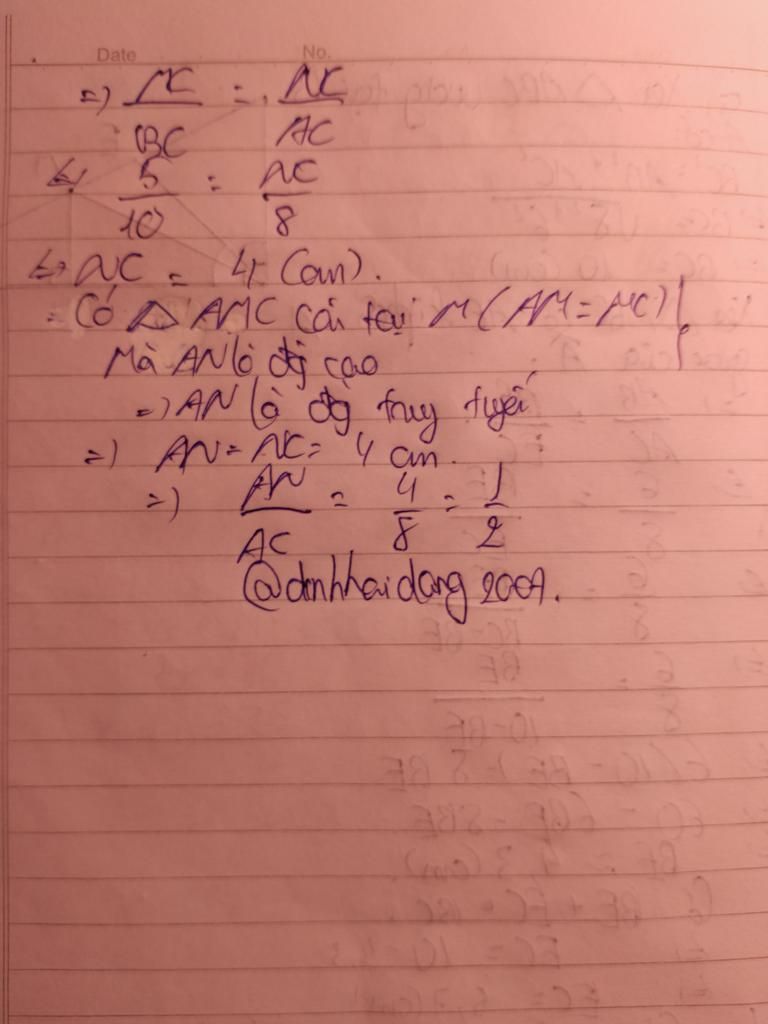 Date No.
=) MC/BC = NC/AC
<=> 5/10 = NC/8
<=> NC = 4 (cm).
- Có △ AMC cân tại M (AM = MC)
Mà AN là đg cao
=) AN là đg trug tuyến
=) AN = NC = 4 cm.
=) AN/AC = 4/8 = 1/2
@dinhhaidang 2007.